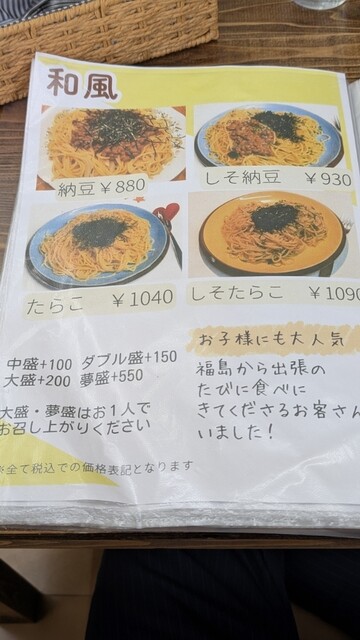 和風
納豆 ¥880
しそ納豆 ¥930
たらこ ¥1040
しそたらこ ¥1090
中盛+100 ダブル盛+150
大盛+200 夢盛+550
大盛・夢盛はお1人で
お召し上がりください
※全て税込での価格表記となります
お子様にも大人気
福島から出張の
たびに食べに
きてくださるお客さん
いました!